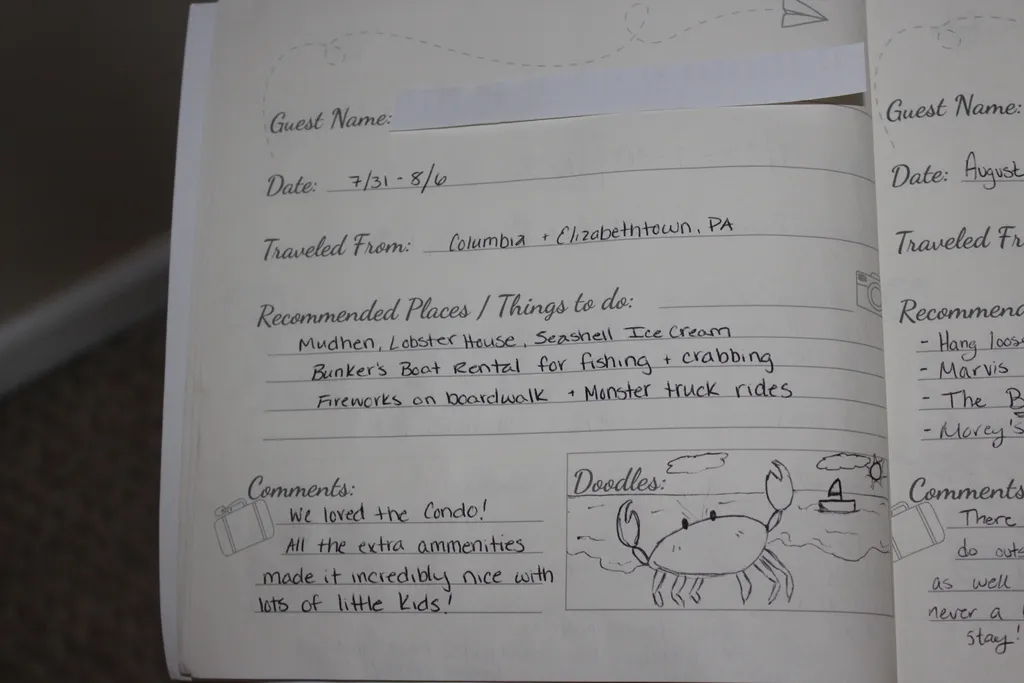 Guest Name:
Date: 7/31 - 8/6
Traveled From: Columbia + Elizabethtown, PA
Recommended Places / Things to do:
Mudhen, Lobster House, Seashell Ice Cream
Bunker's Boat Rental for fishing + crabbing
Fireworks on boardwalk + Monster truck rides
Comments:
We loved the Condo!
All the extra ammenities
made it incredibly nice with
lots of little kids!
Doodles:
Guest Name:
Date: August
Traveled
- Hang
- Marvis
- The
- Morey's
Comments
There
do
as well
never a
stay!